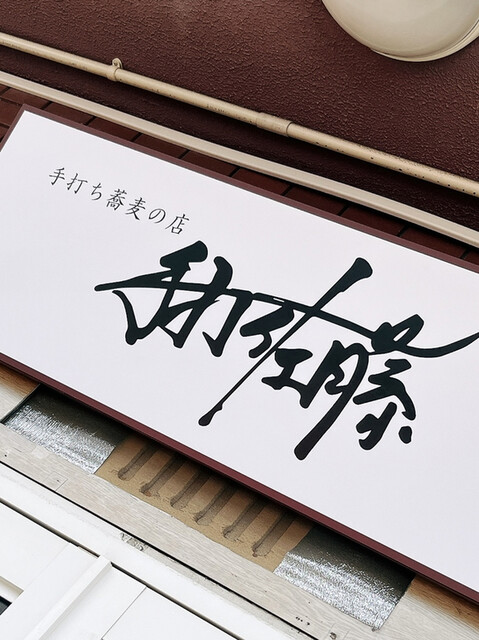 手打ち蕎麦の店
手打佐藤